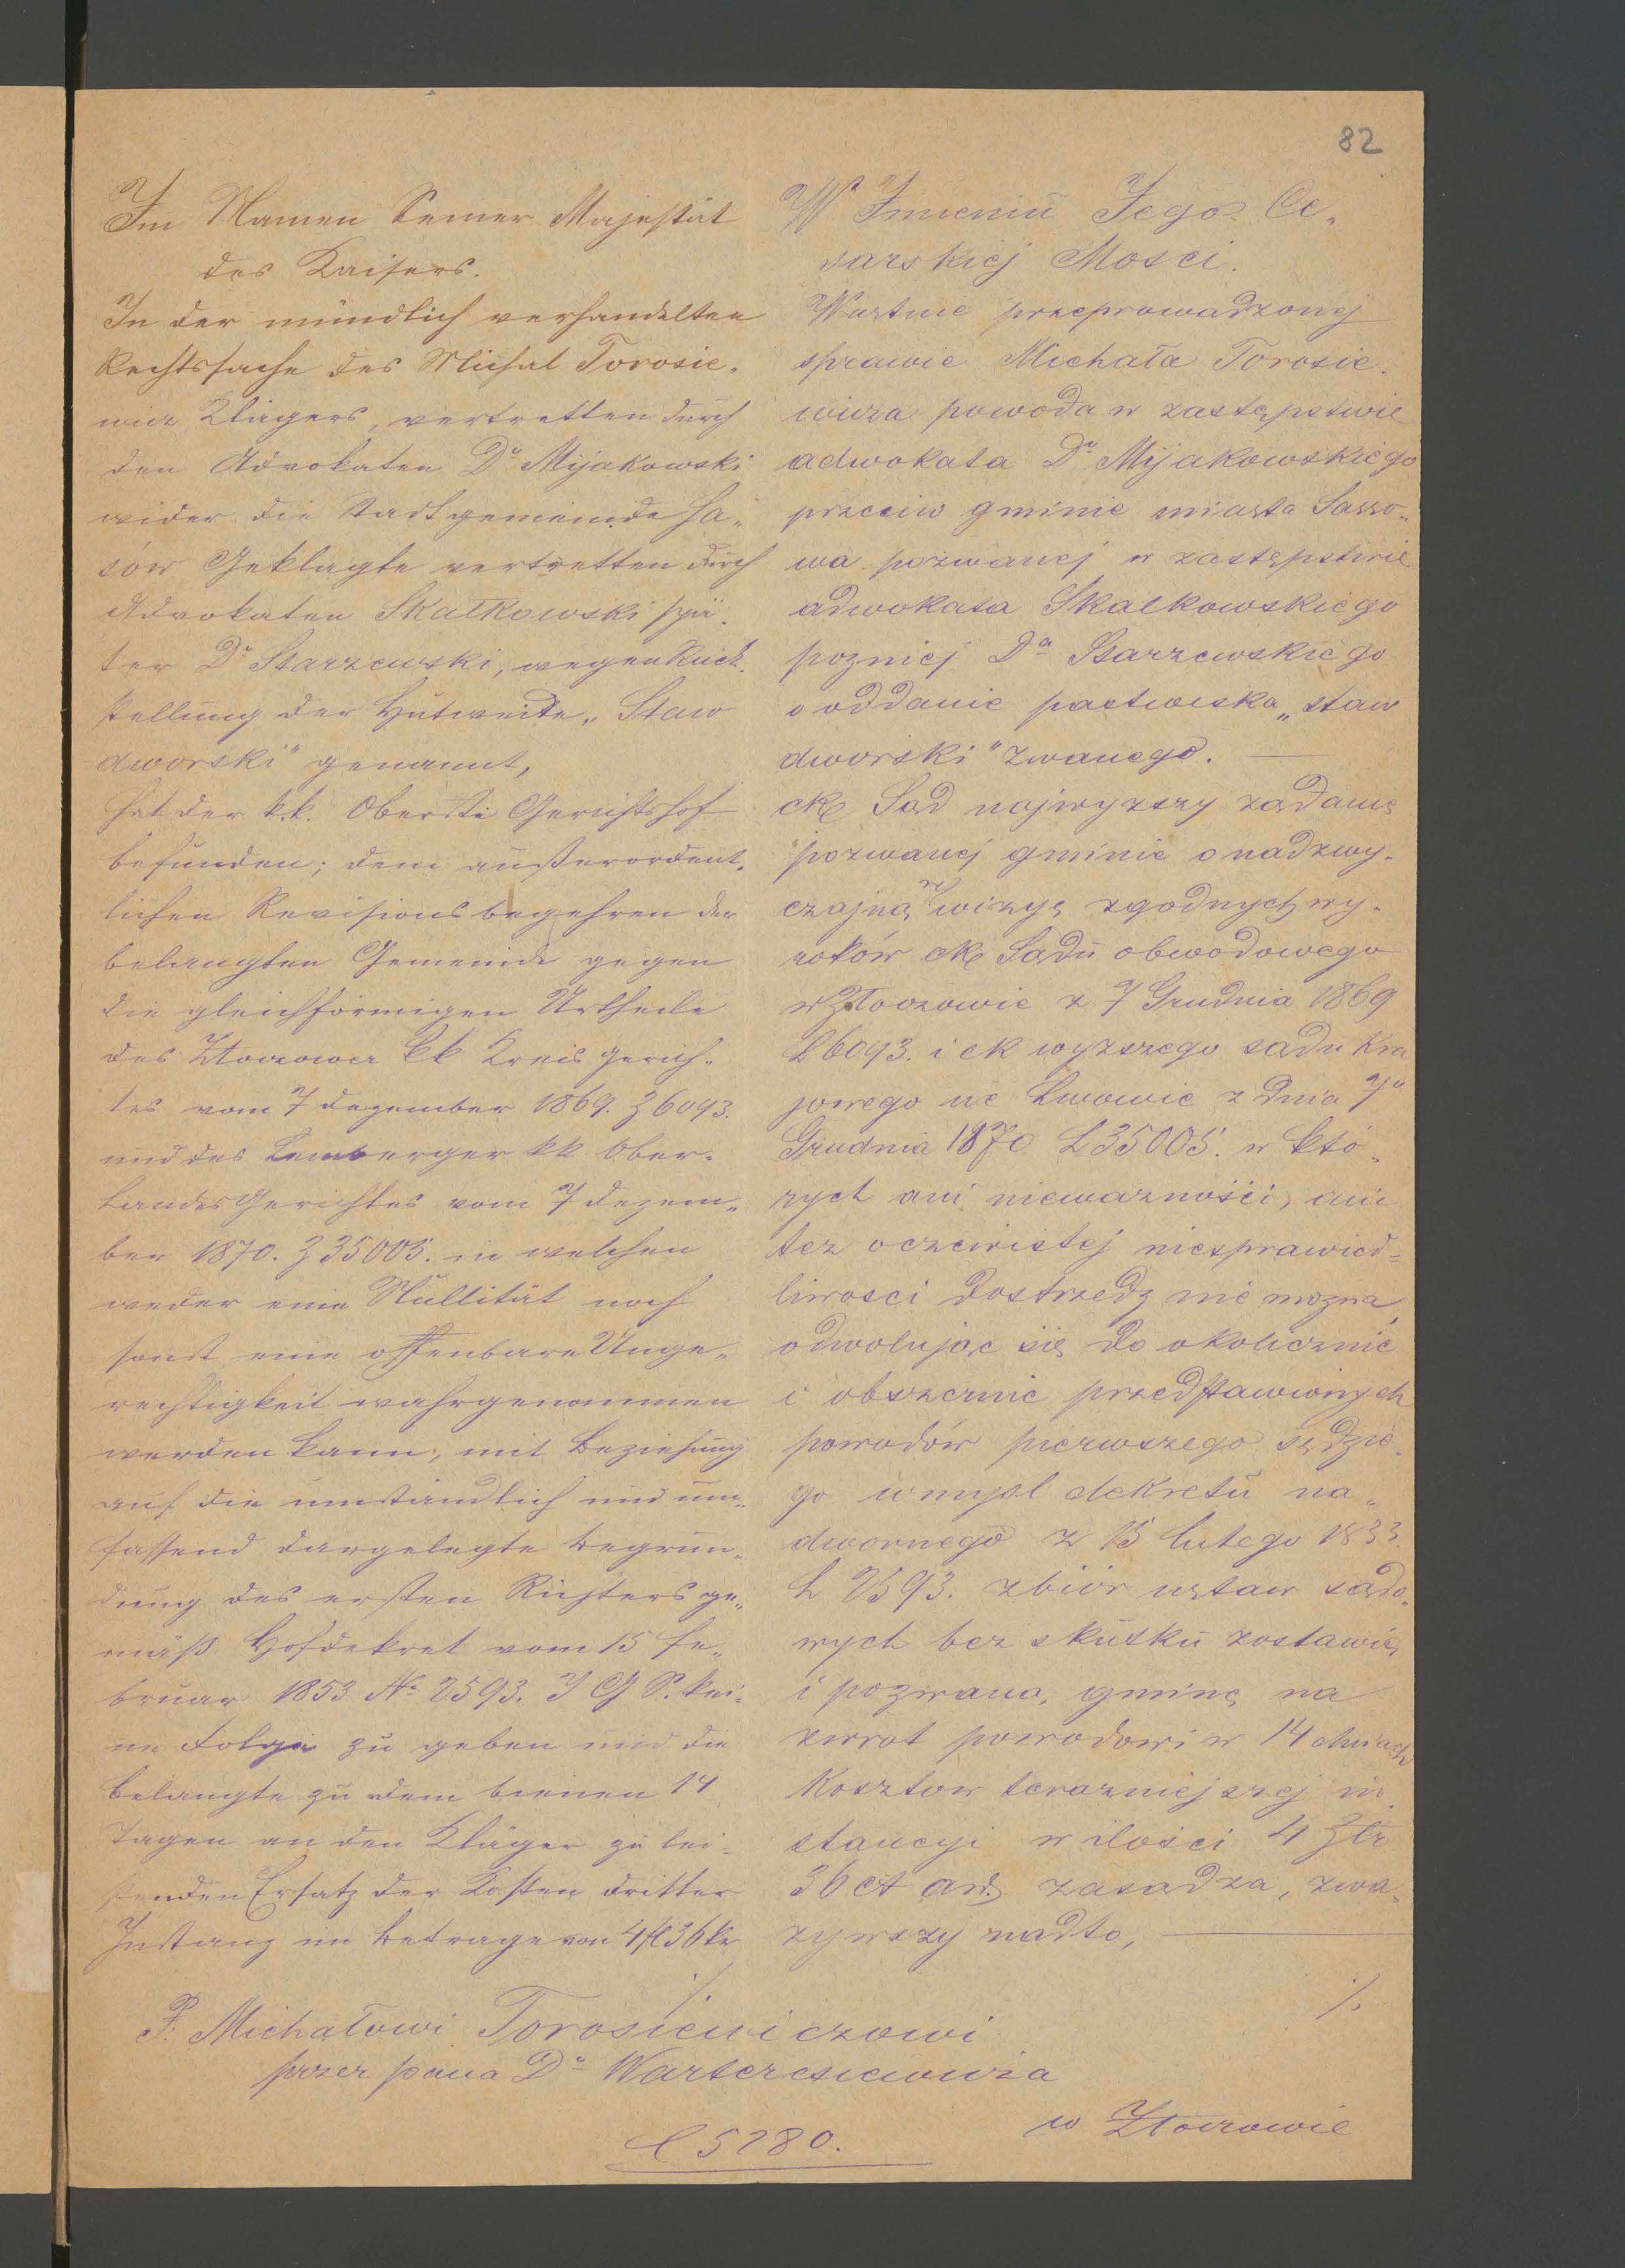 82
Im Namen Seiner Majestät
des Kaisers.
In der mündlich verhandelten
Rechtssache des Michal Torosie„
wicz Klägers, vertretten durch
den Advokaten Dr Mijakowski
wider die Stadtgemeinde Sa„
sów Geklagte vertretten durch
Advokaten Skałkowski spä„
ter Dr Starzewski, wegen Rück„
stellung der Hutweide „Staw
dworski" genannt,
hat der k.k. Oberste Gerichtshof
befunden; dem außerordent„
lichen Revisionsbegehren der
belangten Gemeinde gegen
die gleichförmigen Urtheile
des Złoczower kk Kreis Gerich„
tes vom 7 Dezember 1869. Z 6093.
und des Lemberger kk Ober„
Landes Gerichtes vom 7 Dezem„
ber 1870. Z 35005. in welchen
weder eine Nullität noch
sonst eine offenbare Unge„
rechtigkeit wahrgenommen
werden kann, mit Beziehung
auf die umständlich und um„
fassend dargelegte Begrün„
dung des ersten Richters ge„
mäß Hofdekret vom 15 Fe„
bruar 1833 No 2593. J G S. kei„
ne Folge zu geben und die
Belangte zu dem binnen 14
Tagen an den Kläger zu lei„
stenden Ersatz der Kosten dritter
Instanz im Betrage von 4 fl 36 kr
./.
W Imieniu Jego Ce„
sarskiej Mosci.
Wustnie przeprowadzonej
sprawie Michała Torosie„
wicza powoda w zastępstwie
adwokata Dr Mijakowskiego
przeciw gminie miasta Sasso„
wa pozwanej w zastępstwie
adwokata Skałkowskiego
pozniej Dra Starzewskiego
o oddanie pastwiska „staw
dworski" zwanego.
ck Sąd najwyzszy ządanie
pozwanej gminie o nadzwy„
czajną rewizyę zgodnych wy„
roków ck Sądu obwodowego
w Złoczowie z 7 Grudnia 1869
L 6093. i ck wyzszego sadu Kra
jowego we Lwowie z dnia 7o
Grudnia 1870 L 35005. w któ„
rych ani niewazności, ani
tez oczewistej niesprawied„
liwosci dostrzedz nie mozna,
odwolując się do okolicznie
i obszernie przedstawionych
powodów pierwszego sędzie„
go wmysl dekretu na„
dwornego z 15 lutego 1833.
L 2593. zbiór ustaw sądo„
wych bez skutku zostawia,
i pozwaną gminę na
zwrot powodowi w 14 dniach
Kosztow terazniejszej in
stancyi w ilości 4 Złr
36 ct aw. zasadza, zwa„
zywszy nadto,
./.
P. Michałowi Torosiewiczowi
przez pana Dr Warteresiewicza
w Złoczowie
L 5280.